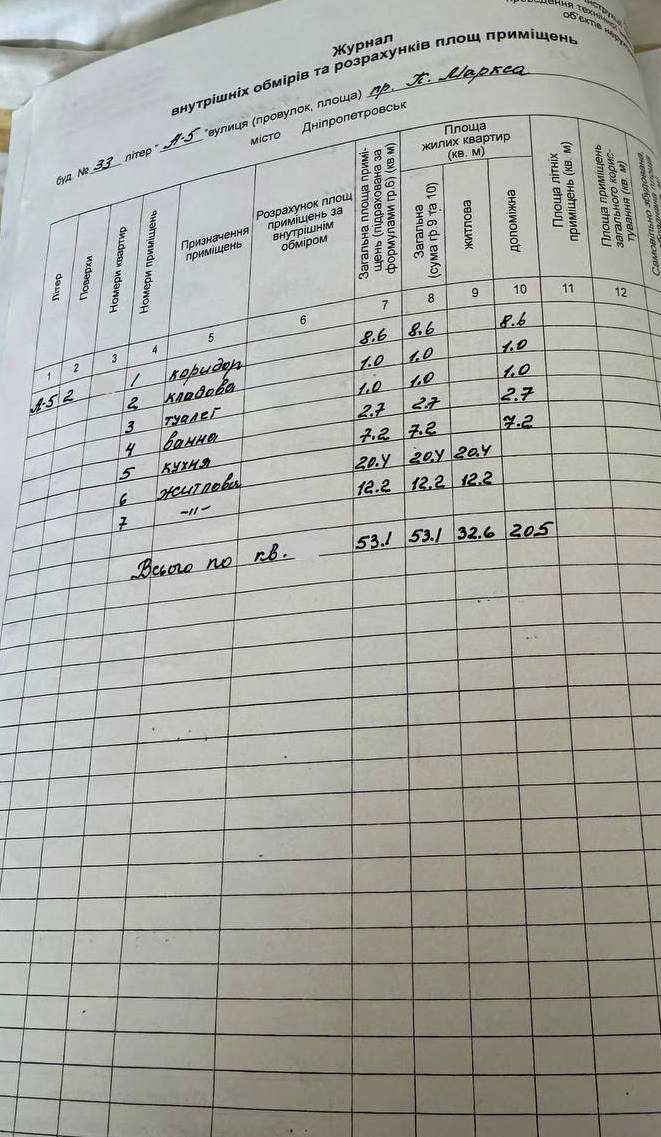 проведення технічної
об'єктів
Журнал
внутрішніх обмірів та розрахунків площ приміщень
буд. № 33 літер "А-5" вулиця (провулок, площа) пр. К. Маркса
місто Дніпропетровськ
Літер
Поверхи
Номери квартир
Номери приміщень
Призначення приміщень
Розрахунок площ приміщень за внутрішнім обміром
Загальна площа приміщень (підрахована за формулами гр.6) (кв м)
Площа жилих квартир (кв. м)
Загальна (сума гр 9 та 10)
житлова
допоміжна
Площа літніх приміщень (кв. м)
Площа приміщень загального користування (кв. м)
Самовільно збудована
1 2 3 4 5 6 7 8 9 10 11 12
А-5 2 1 коридор 8.6 8.6 8.6
2 кладова 1.0 1.0 1.0
3 туалет 1.0 1.0 1.0
4 ванна 2.7 2.7 2.7
5 кухня 7.2 7.2 7.2
6 житлова 20.4 20.4 20.4
7 -"- 12.2 12.2 12.2
Всього по кв. 53.1 53.1 32.6 20.5